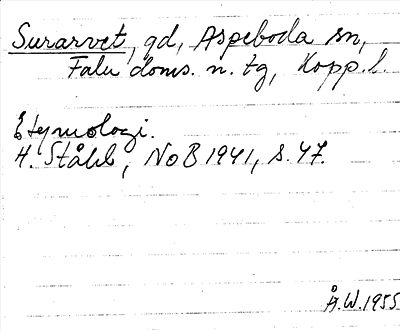 Surarvet, gd, Aspeboda sn,
Falu doms. n. tg, Kopp. l.
Etymologi.
H. Ståhl, NoB 1941, s. 47.
Å.W. 1955